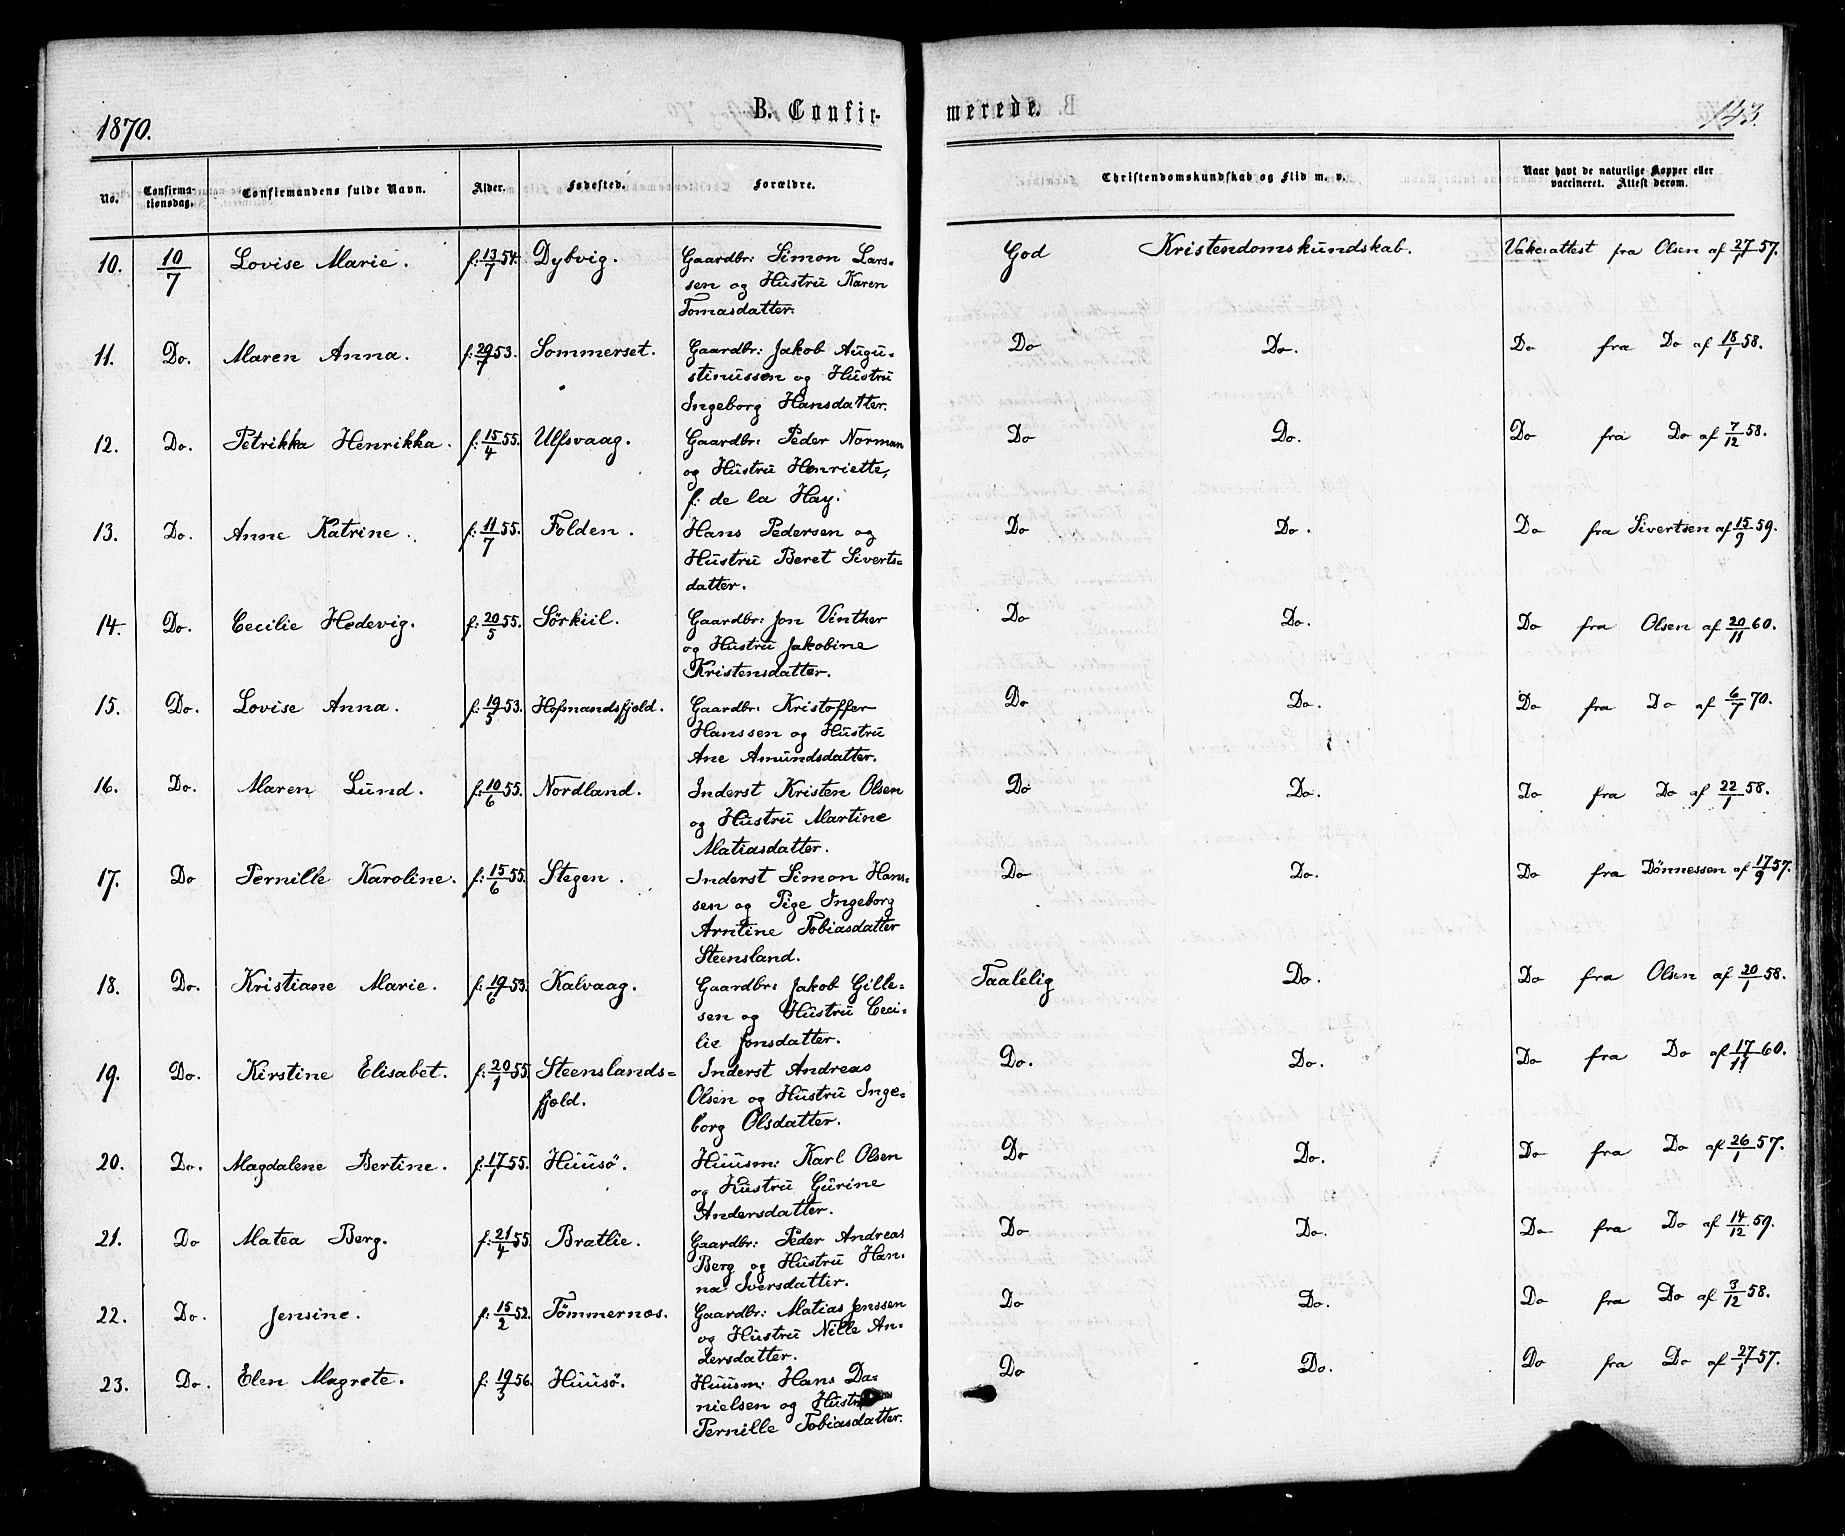 1870.
B. Confirmerede.
143.
No. Confirmationsdag. Confirmandens fulde Navn. Alder. Fødested. Forældre. Christendomskundskab og Flid m. v. Naar havt de naturlige Kopper eller vaccineret. Attest derom.
10. 10/7 Lovise Marie. f: 13/7 54. Dybvig. Gaardbr: Simon Lars- God Kristendomskundskab. Vakc:attest fra Olsen af 27/1 57.
sen og Hustru Karen
Tomasdatter.
11. Do. Maren Anna. f: 29/7 53. Sommerset. Gaardbr: Jakob Augu- Do Do. Do fra Do af 18/1 58.
stinussen og Hustru
Ingeborg Hansdatter.
12. Do. Petrikka Henrikka. f: 15/4 55. Ulfsvaag. Gaardbr: Peder Norman Do Do. Do fra Do af 7/12 58.
og Hustru Henriette,
f: de la Hay.
13. Do. Anne Katrine. f: 11/7 55. Folden. Hans Pedersen og Do Do. Do fra Sivertsen af 15/9 59.
Hustru Beret Siverts-
datter.
14. Do. Cecilie Hedevig. f: 20/5 55. Sørkiil. Gaardbr: Jon Vinther Do Do. Do fra Olsen af 20/11 60.
og Hustru Jakobine
Kristensdatter.
15. Do. Lovise Anna. f: 19/5 53. Hofmandsfjeld. Gaardbr: Kristoffer Do Do. Do fra Do af 6/7 70.
Hanssen og Hustru
Ane Amundsdatter.
16. Do. Maren Lund. f: 10/6 55. Nordland. Inderst Kristen Olsen Do Do. Do fra Do af 22/1 58.
og Hustru Martine
Matiasdatter.
17. Do Pernille Karoline. f: 15/6 55. Stegen. Inderst Simon Hans- Do Do. Do fra Dønnessen af 17/9 57.
sen og Pige Ingeborg
Arntine Tobiasdatter
Steensland.
18. Do. Kristiane Marie. f: 19/6 53. Kalvaag. Gaardbr: Jakob Gille- Taalelig Do. Do fra Olsen af 20/1 58.
sen og Hustru Ceci-
lie Jonsdatter.
19. Do. Kirstine Elisabet. f: 20/1 55. Steenslands= Inderst Andreas Do. Do. Do fra Do af 17/11 60.
fjeld. Olsen og Hustru Inge-
borg Olsdatter.
20. Do. Magdalene Bertine. f: 17/1 55. Huusø. Huusm: Karl Olsen Do Do. Do fra Do af 26/1 57.
og Hustru Gurine
Andersdatter.
21. Do Matea Berg. f: 21/4 55. Bratlie. Gaardbr: Peder Andreas Do Do. Do fra Do af 14/12 59.
Berg og Hustru Han-
na Iversdatter.
22. Do. Jensine. f: 15/2 52. Tømmernæs. Gaardbr: Matias Jenssen Do Do. Do fra Do af 3/12 58.
og Hustru Nille An-
dersdatter.
23. Do. Elen Magrete. f: 19/3 56. Huusø. Huusm: Hans Da- Do Do. Do fra Do af 27/1 57.
nielsen og Hustru
Pernille Tobiasdatter.